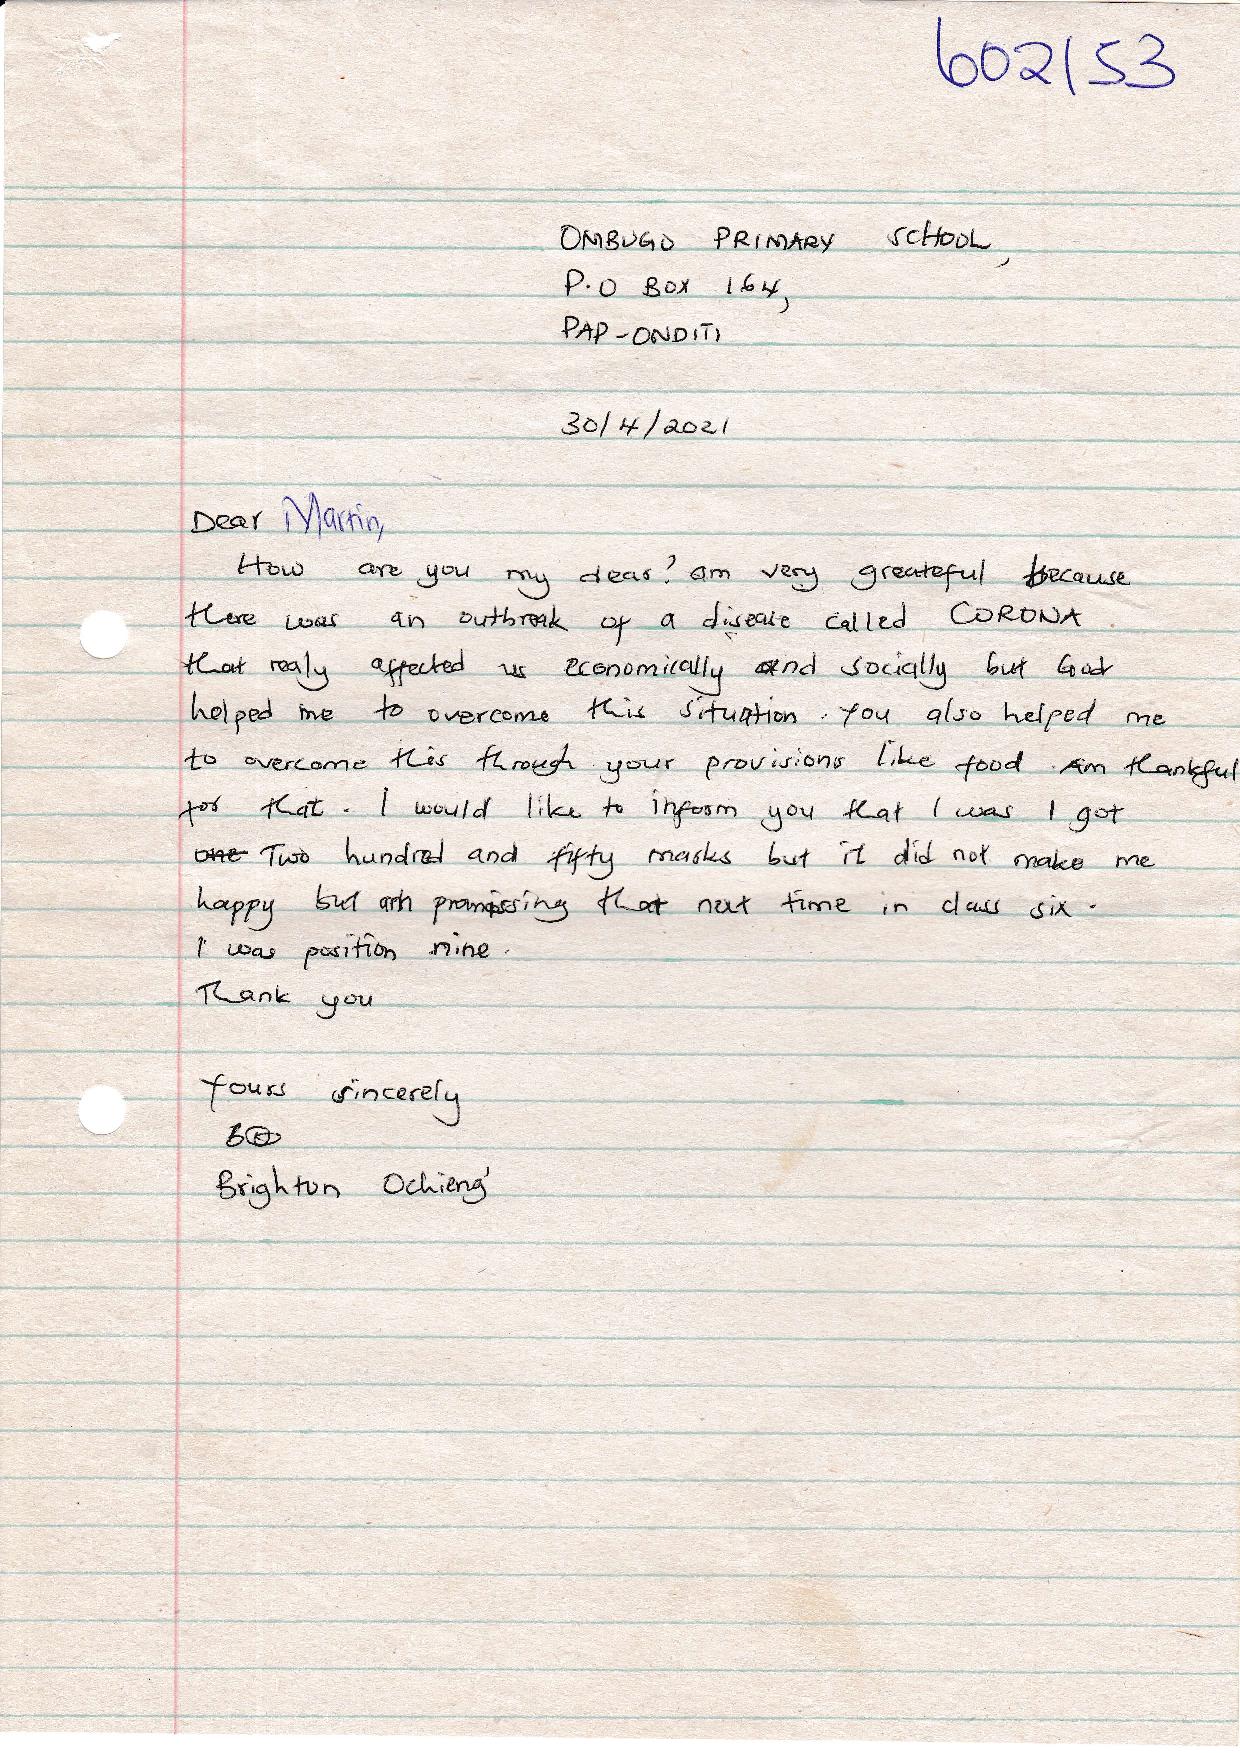 602/53
OMBUGO PRIMARY SCHOOL,
P.O BOX 164,
PAP-ONDITI
30/4/2021
Dear Martin,
How are you my dear? am very greateful because
there was an outbreak of a disease called CORONA
that realy affected us economically and socially but God
helped me to overcome this situation. You also helped me
to overcome this through your provisions like food. Am thankful
for that. I would like to inform you that I was I got
one Two hundred and fifty masks but it did not make me
happy but am promissing that next time in class six.
I was position nine.
Thank you
Yours sincerely
Brighton Ochieng'